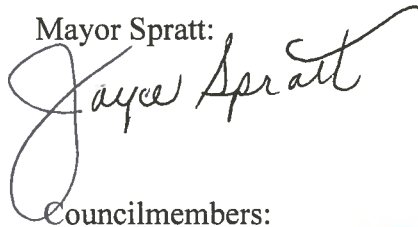 Mayor Spratt:
Joyce Spratt
Councilmembers: